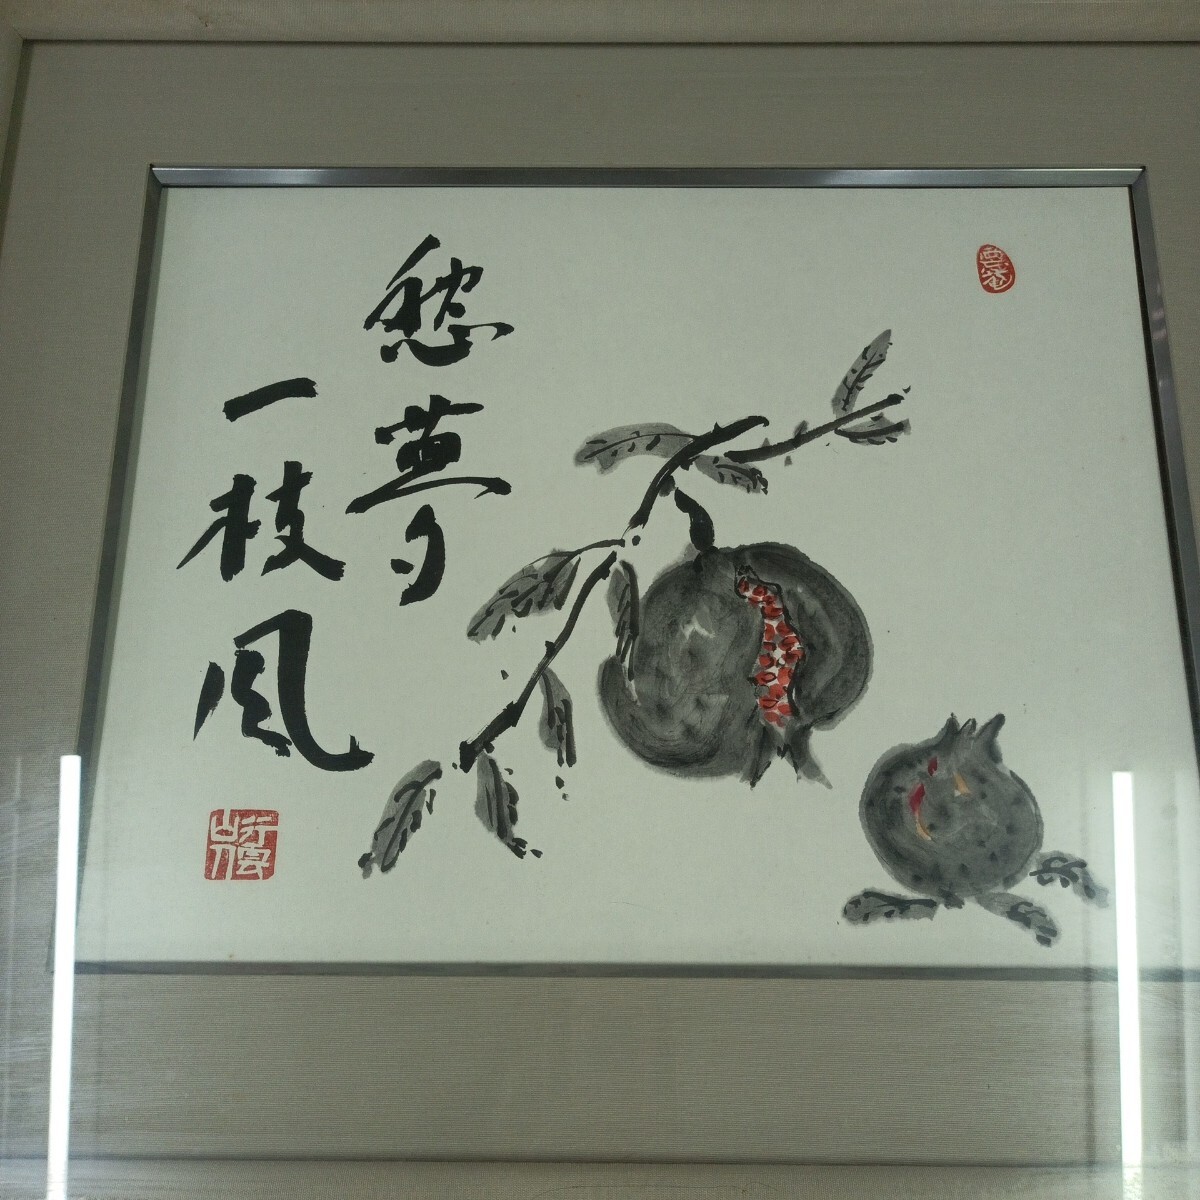 愁夢
一枝風